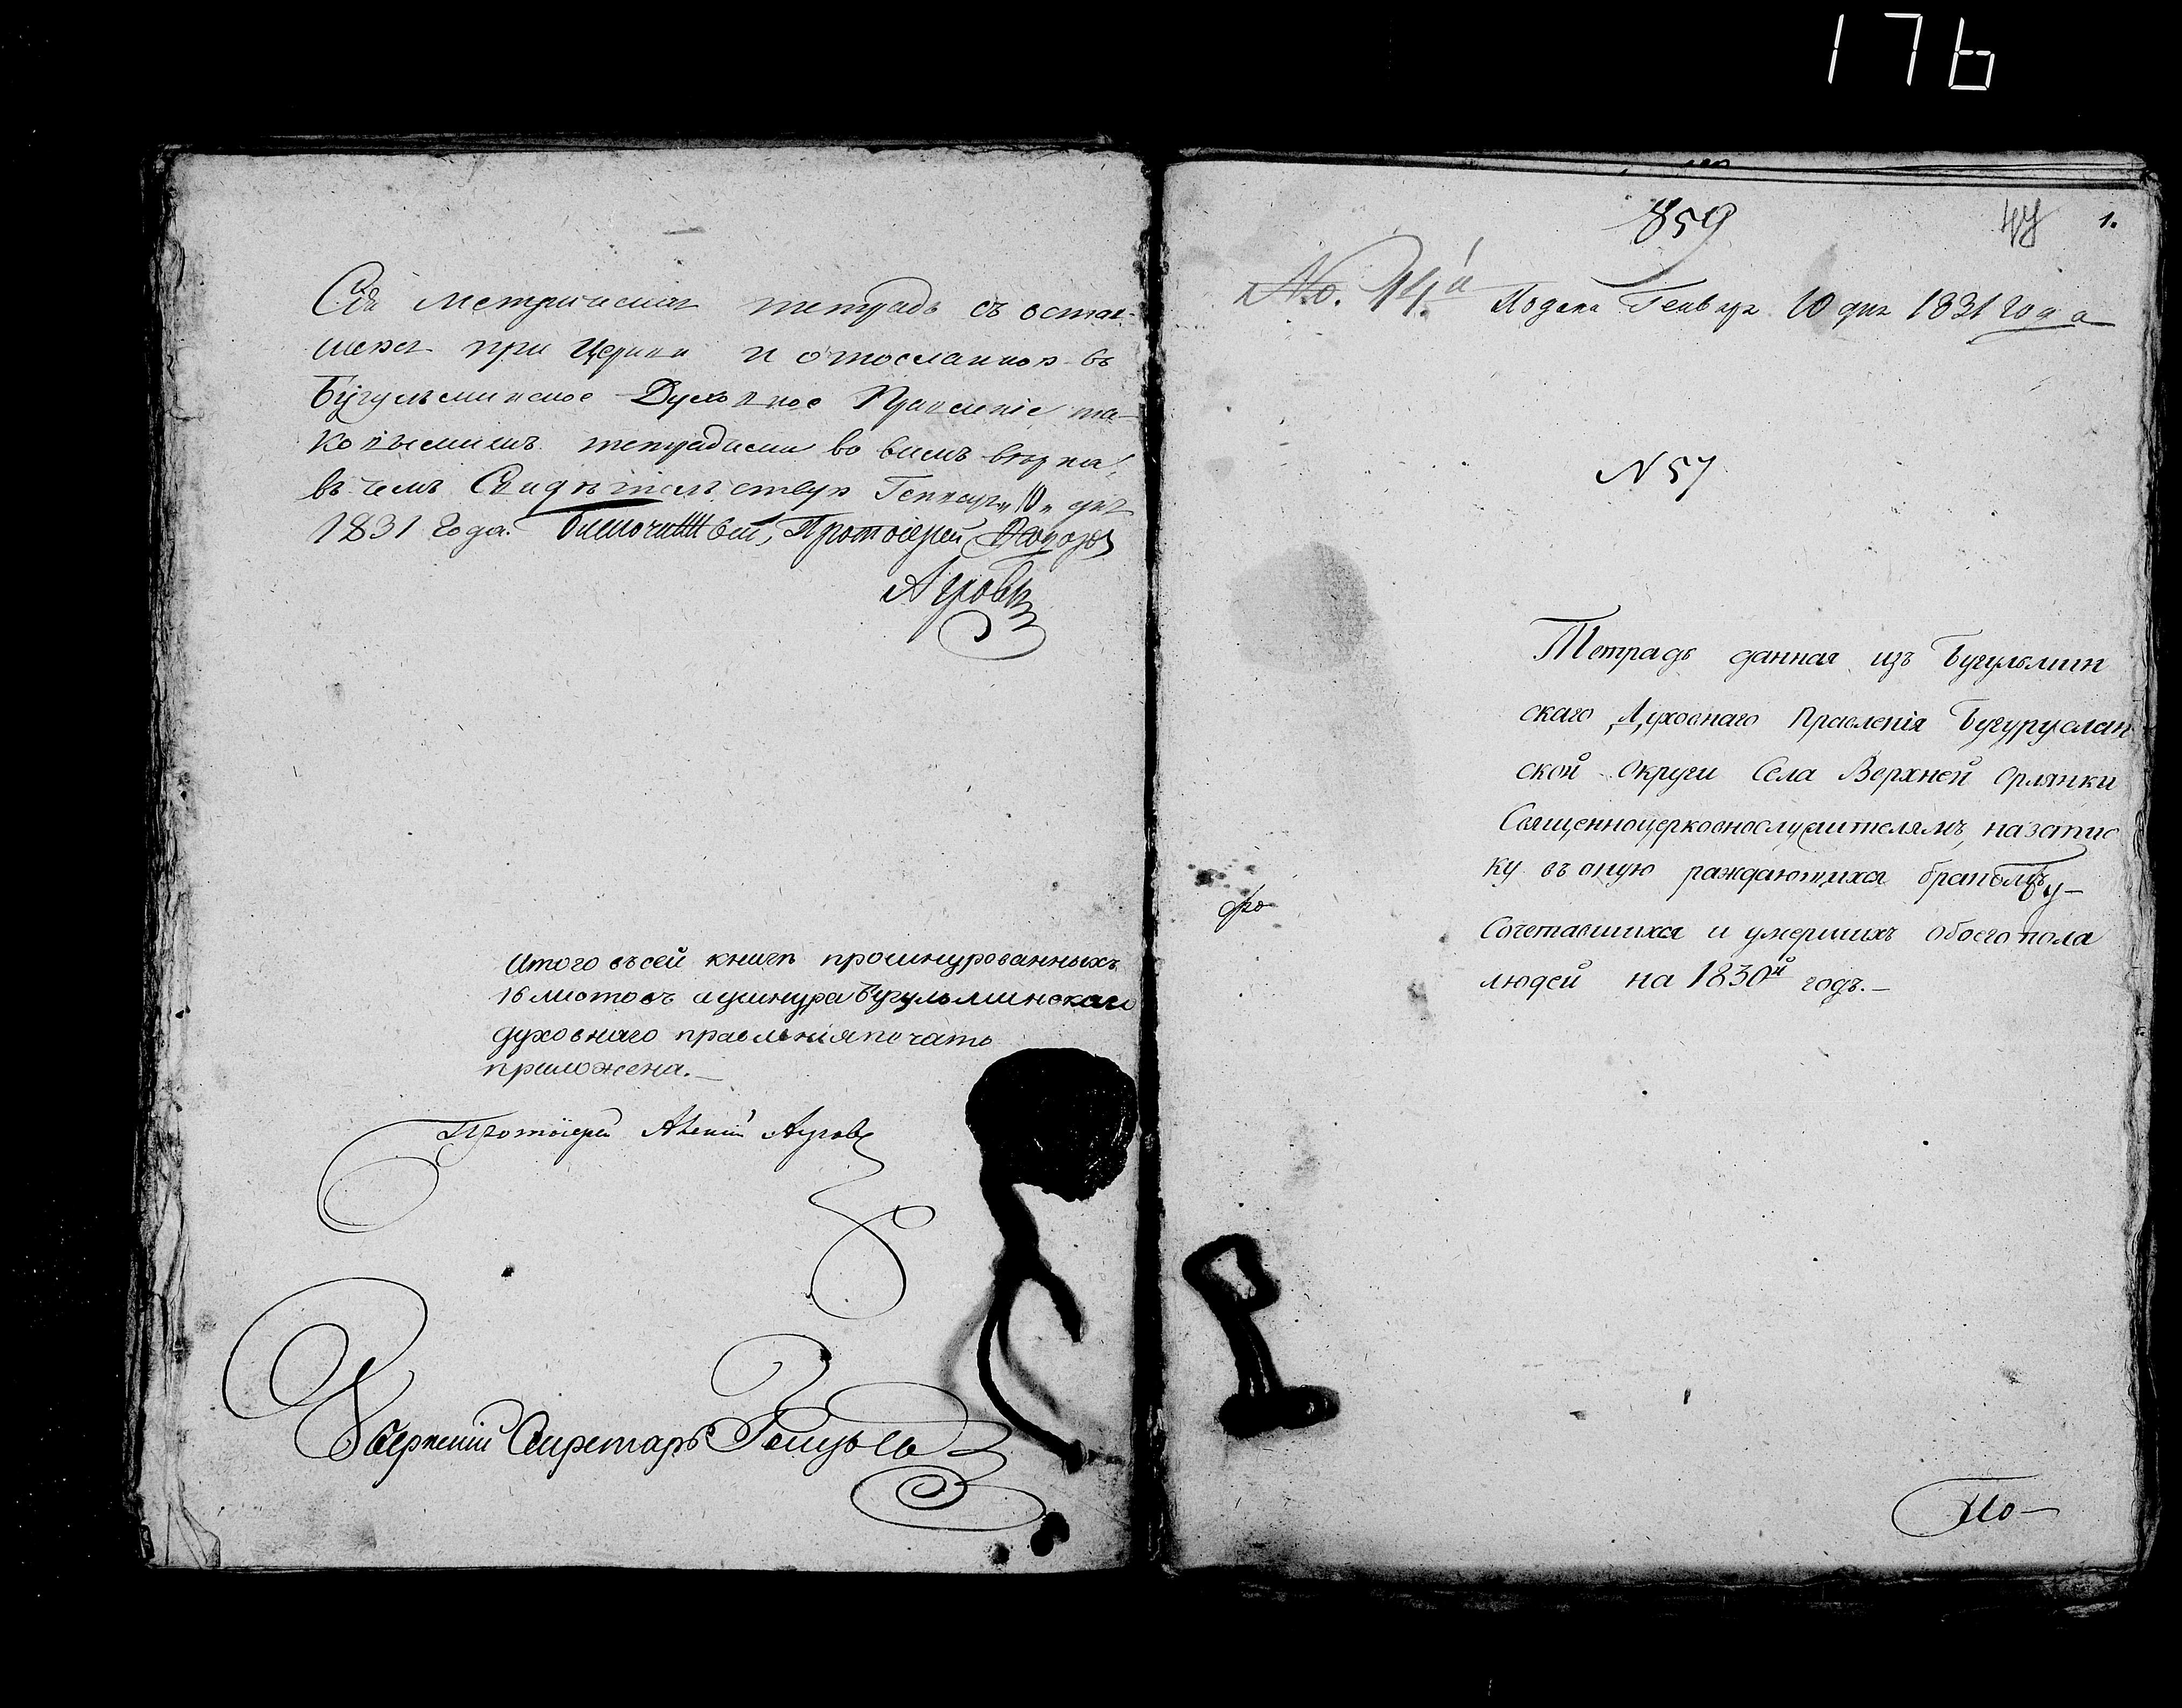 176
Сiя метрическая тетрадь съ остав-
шеюся при Церкви и отосланною въ
Бугульминское Духовное Правленiе та-
ковысмишъ тетрадьми во всемъ вѣрна,
въ чемъ Свидѣтельствую Генваря „10„ дня
1831 Года. Благочинный, Протоiерей
Агровъ
Итого въ сей книгѣ прошнурованныхъ
16 листовъ а у шнура Бугульминскаго
духовнаго правленiя печать
приложена.—
Протоiерей Агровъ
Губернскiй Секретарь
859
1.
No. 14.й Подана Генваря 10 дня 1831 Года
N 57
Тетрадь данная изъ Бугульмин
скаго Духовнаго Правленiя Бугуруслан
ской округи Села Верхней Орлянки
Священноцерковнослужителямъ, на запис
ку въ оную раждающихся бракомъ
Сочетавшихся и умершихъ обоего пола
людей на 1830й годъ.—
По—